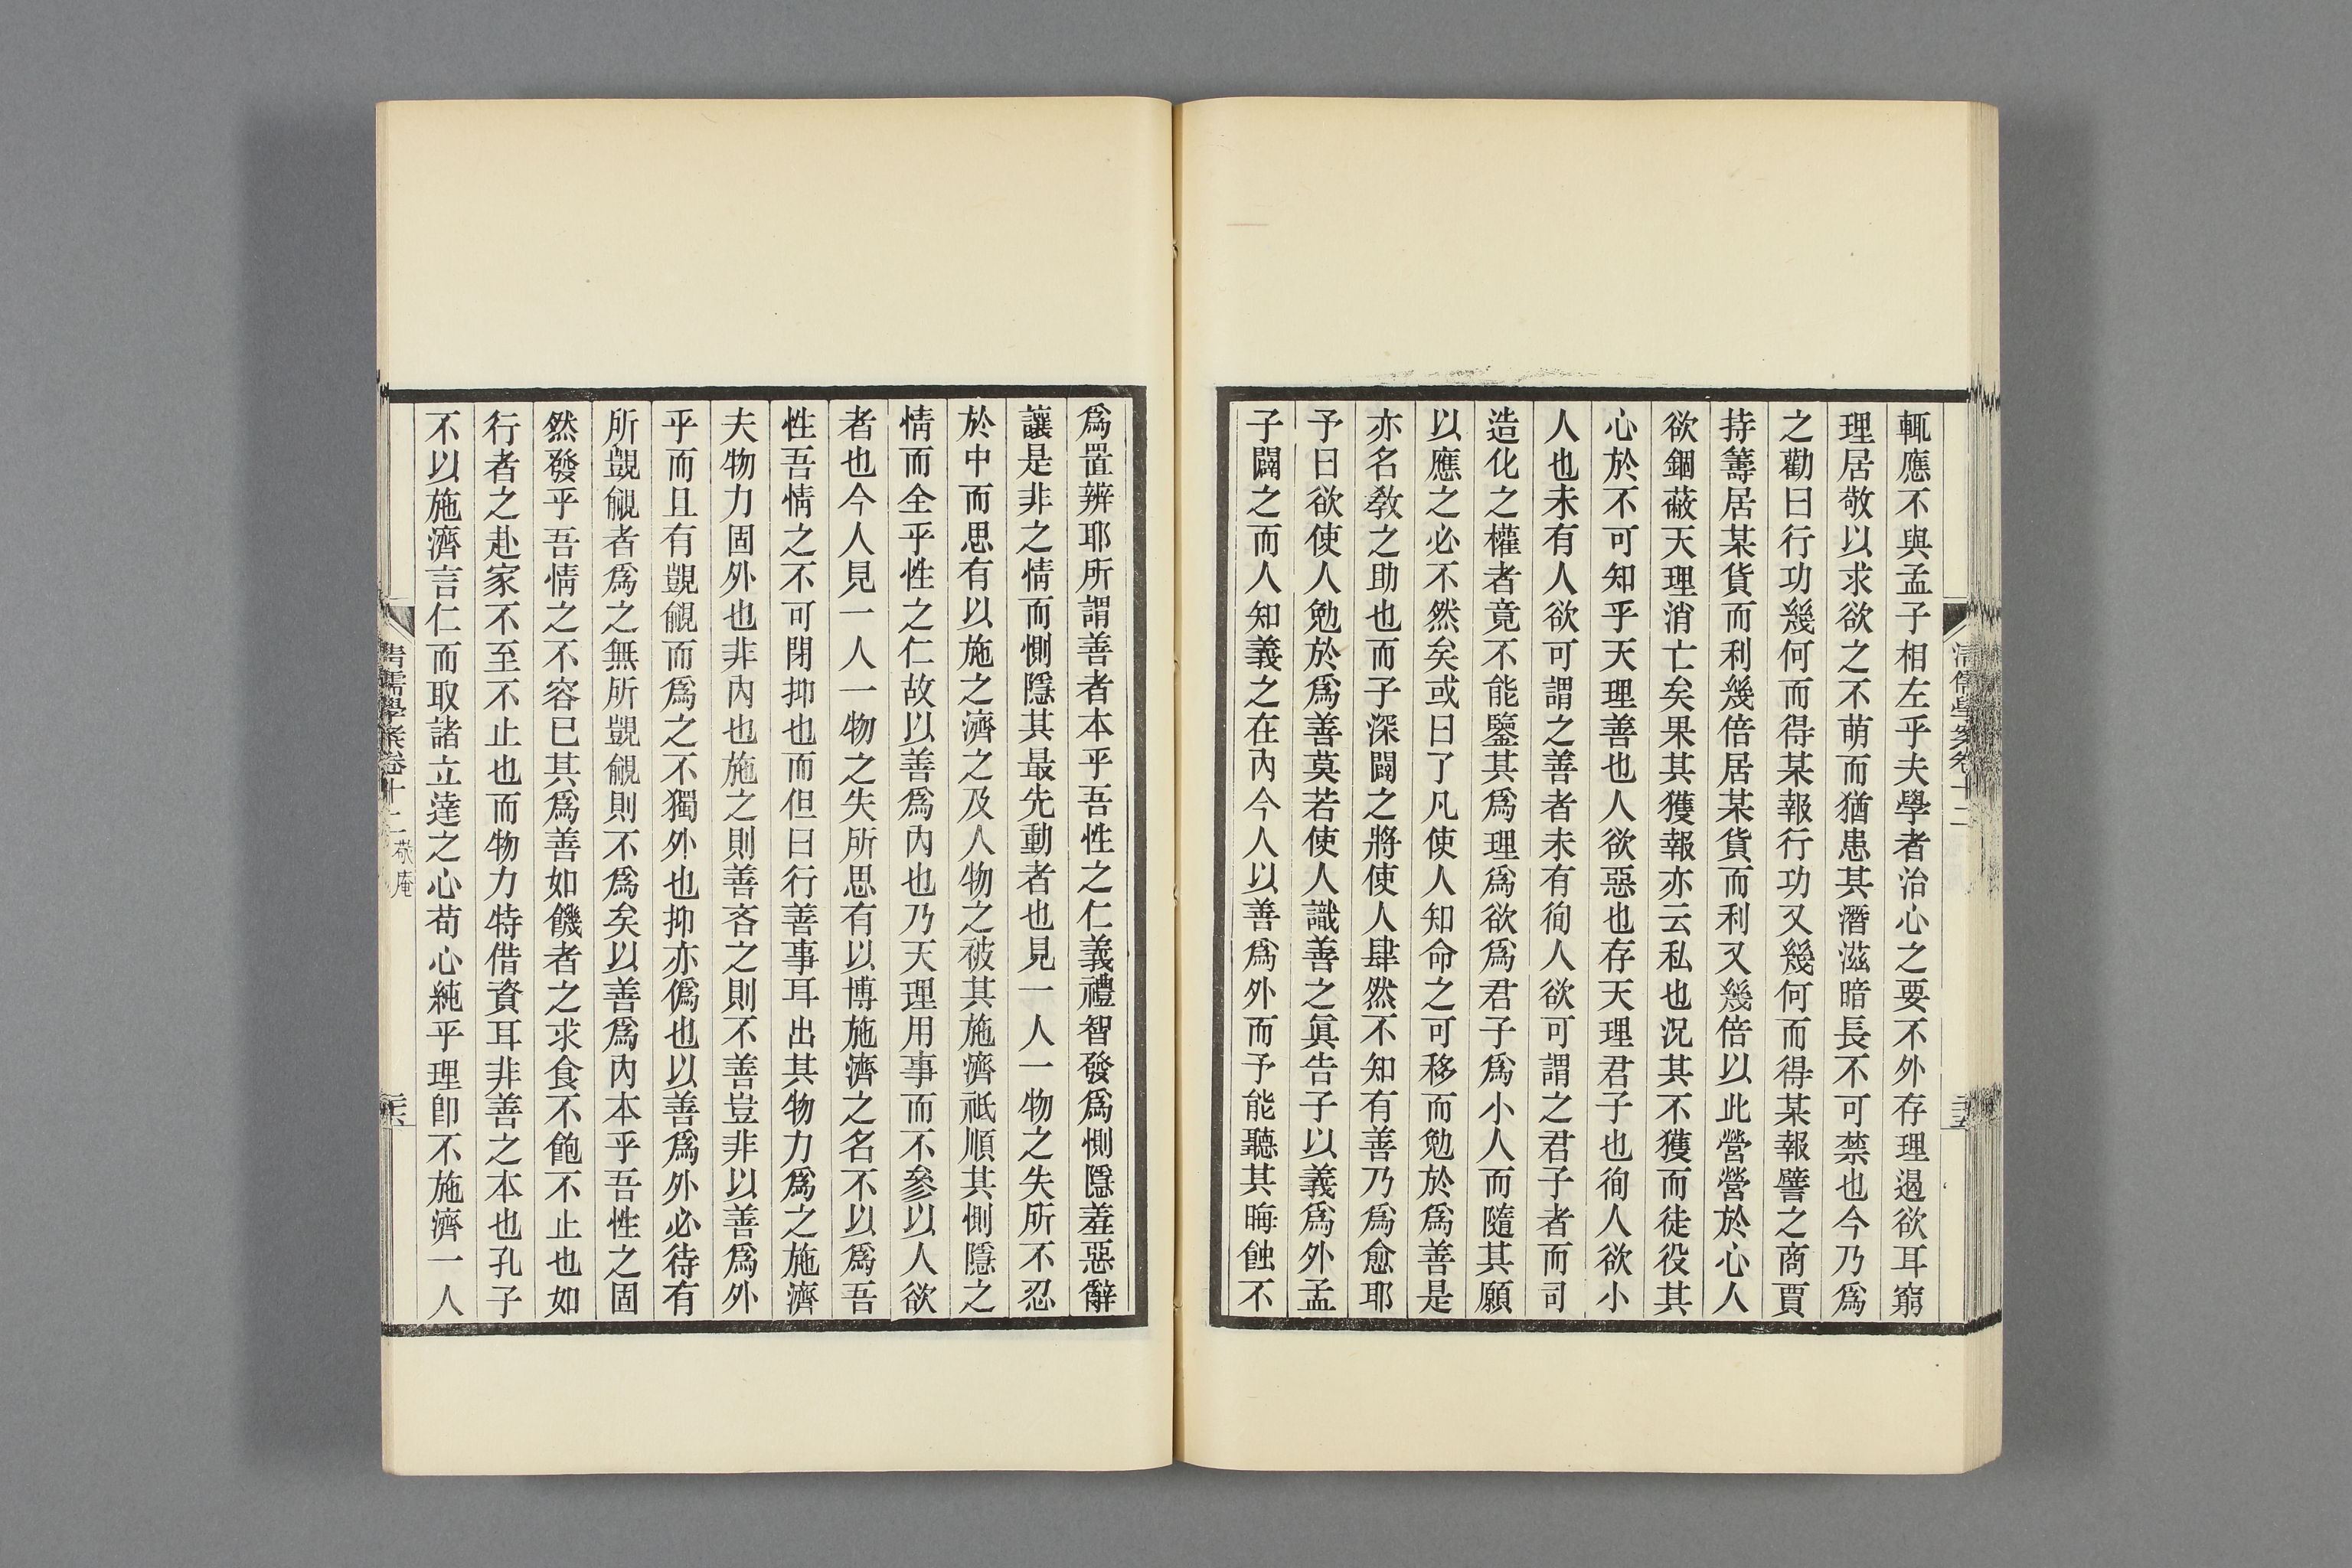 輒應不與孟子相左乎夫學者治心之要不外存理遏欲耳窮
理居敬以求欲之不萌而猶患其潛滋暗長不可禁也今乃爲
之勸曰行功幾何而得某報行功又幾何而得某報譬之商賈
持籌居某貨而利幾倍居某貨而利又幾倍以此營營於心人
欲錮蔽天理消亡矣果其獲報亦云私也況其不獲而徒役其
心於不可知乎天理善也人欲惡也存天理君子也徇人欲小
人也未有人欲可謂之善者未有徇人欲可謂之君子者而司
造化之權者竟不能鑒其爲理爲欲爲君子爲小人而隨其願
以應之必不然矣或曰了凡使人知命之可移而勉於爲善是
亦名教之助也而子深闢之將使人肆然不知有善乃爲愈耶
予曰欲使人勉於爲善莫若使人識善之眞告子以義爲外孟
子闢之而人知義之在內今人以善爲外而予能聽其晦蝕不
清儒學案卷十二
二十五
爲置辨耶所謂善者本乎吾性之仁義禮智發爲惻隱羞惡辭
讓是非之情而惻隱其最先動者也見一人一物之失所不忍
於中而思有以施之濟之及人物之被其施濟祇順其惻隱之
情而全乎性之仁故以善爲內也乃天理用事而不參以人欲
者也今人見一人一物之失所思有以博施濟之名不以爲吾
性吾情之不可閉抑也而但曰行善事耳出其物力爲之施濟
夫物力固外也非內也施之則善吝之則不善豈非以善爲外
乎而且有覬覦而爲之不獨外也抑亦僞也以善爲外必待有
所覬覦者爲之無所覬覦則不爲矣以善爲內本乎吾性之固
然發乎吾情之不容已其爲善如饑者之求食不飽不止也如
行者之赴家不至不止也而物力特借資耳非善之本也孔子
不以施濟言仁而取諸立達之心苟心純乎理卽不施濟一人
清儒學案卷十二 敬庵
二十六